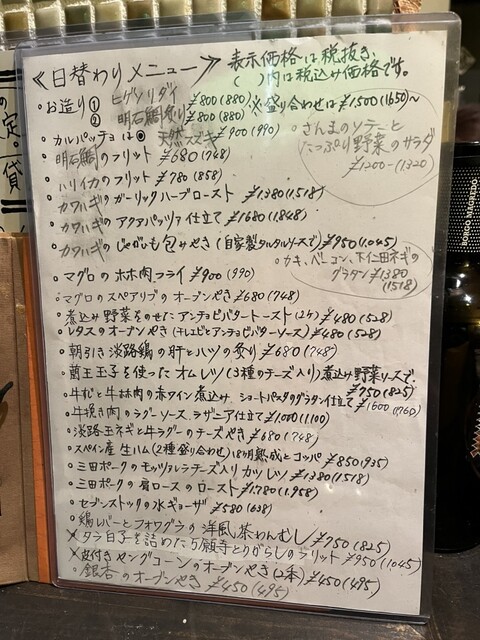 ≪日替わりメニュー≫ 表示価格は税抜き、
( )内は税込み価格です。
・お造り① ヒゲソリダイ ¥800(880) ※盛り合わせは¥1500(1650)~
② 明石鯛炙り ¥800(880)
・カルパッチョは 天然スズキ ¥900(990)
・さんまのソテーと
たっぷり野菜のサラダ
¥1200-(1320)
・明石鯛のフリット ¥680(748)
・ハリイカのフリット ¥780(858)
・カワハギのガーリックハーブロースト ¥1380(1518)
・カワハギのアクアパッツァ仕立て ¥1680(1848)
・カワハギのじゃがいも包みやき(自家製タルタルソースで) ¥950(1045)
・カキ、ベーコン、下仁田ネギの
グラタン ¥1380
(1518)
・マグロのホホ肉フライ ¥900(990)
・マグロのスペアリブのオーブンやき ¥680(748)
・煮込み野菜をのせたアンチョビバタートースト(2ヶ) ¥480(528)
・レタスのオーブンやき(チレエビとアンチョビバターソース) ¥480(528)
・朝引き淡路鶏の肝とハツの炙り ¥680(748)
・蘭王玉子を使ったオムレツ(3種のチーズ入り)煮込み野菜ソースで、
¥750(825)
・牛すじと牛ホホ肉の赤ワイン煮込み ショートパスタのグラタン仕立て ¥1600(1760)
・牛挽き肉のラグーソース、ラザニア仕立て ¥1000(1100)
・淡路玉ネギと牛ラグーのチーズやき ¥680(748)
・スペイン産生ハム(2種盛り合わせ)18ヶ月熟成とコッパ ¥850(935)
・三田ポークのモッツァレラチーズ入りカツレツ ¥1380(1518)
・三田ポークの肩ロースのロースト ¥1780(1958)
・セブンストックの水ギョーザ ¥580(638)
・鶏レバーとフォワグラの洋風茶わんむし ¥750(825)
×タラ白子を詰めた万願寺とりがらしのフリット ¥950(1045)
×皮付きヤングコーンのオーブンやき(2本) ¥450(495)
・銀杏のオーブンやき ¥450(495)
BORGO MAGREDO